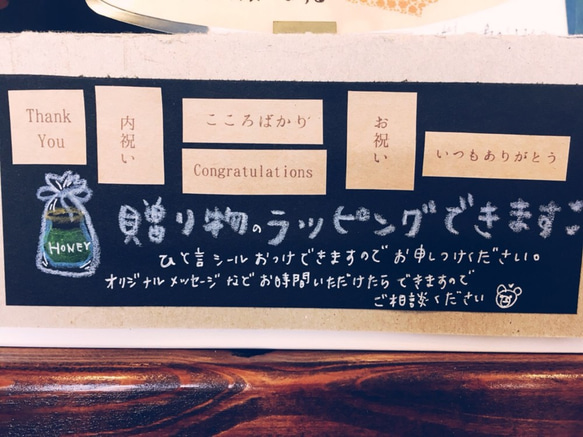 Thank
You
内祝い
こころばかり
Congratulations
お祝い
いつもありがとう
HONEY
贈り物のラッピングできます
ひと言シールおつけできますのでお申しつけください。
オリジナルメッセージなどお時間いただけたらできますので
ご相談ください